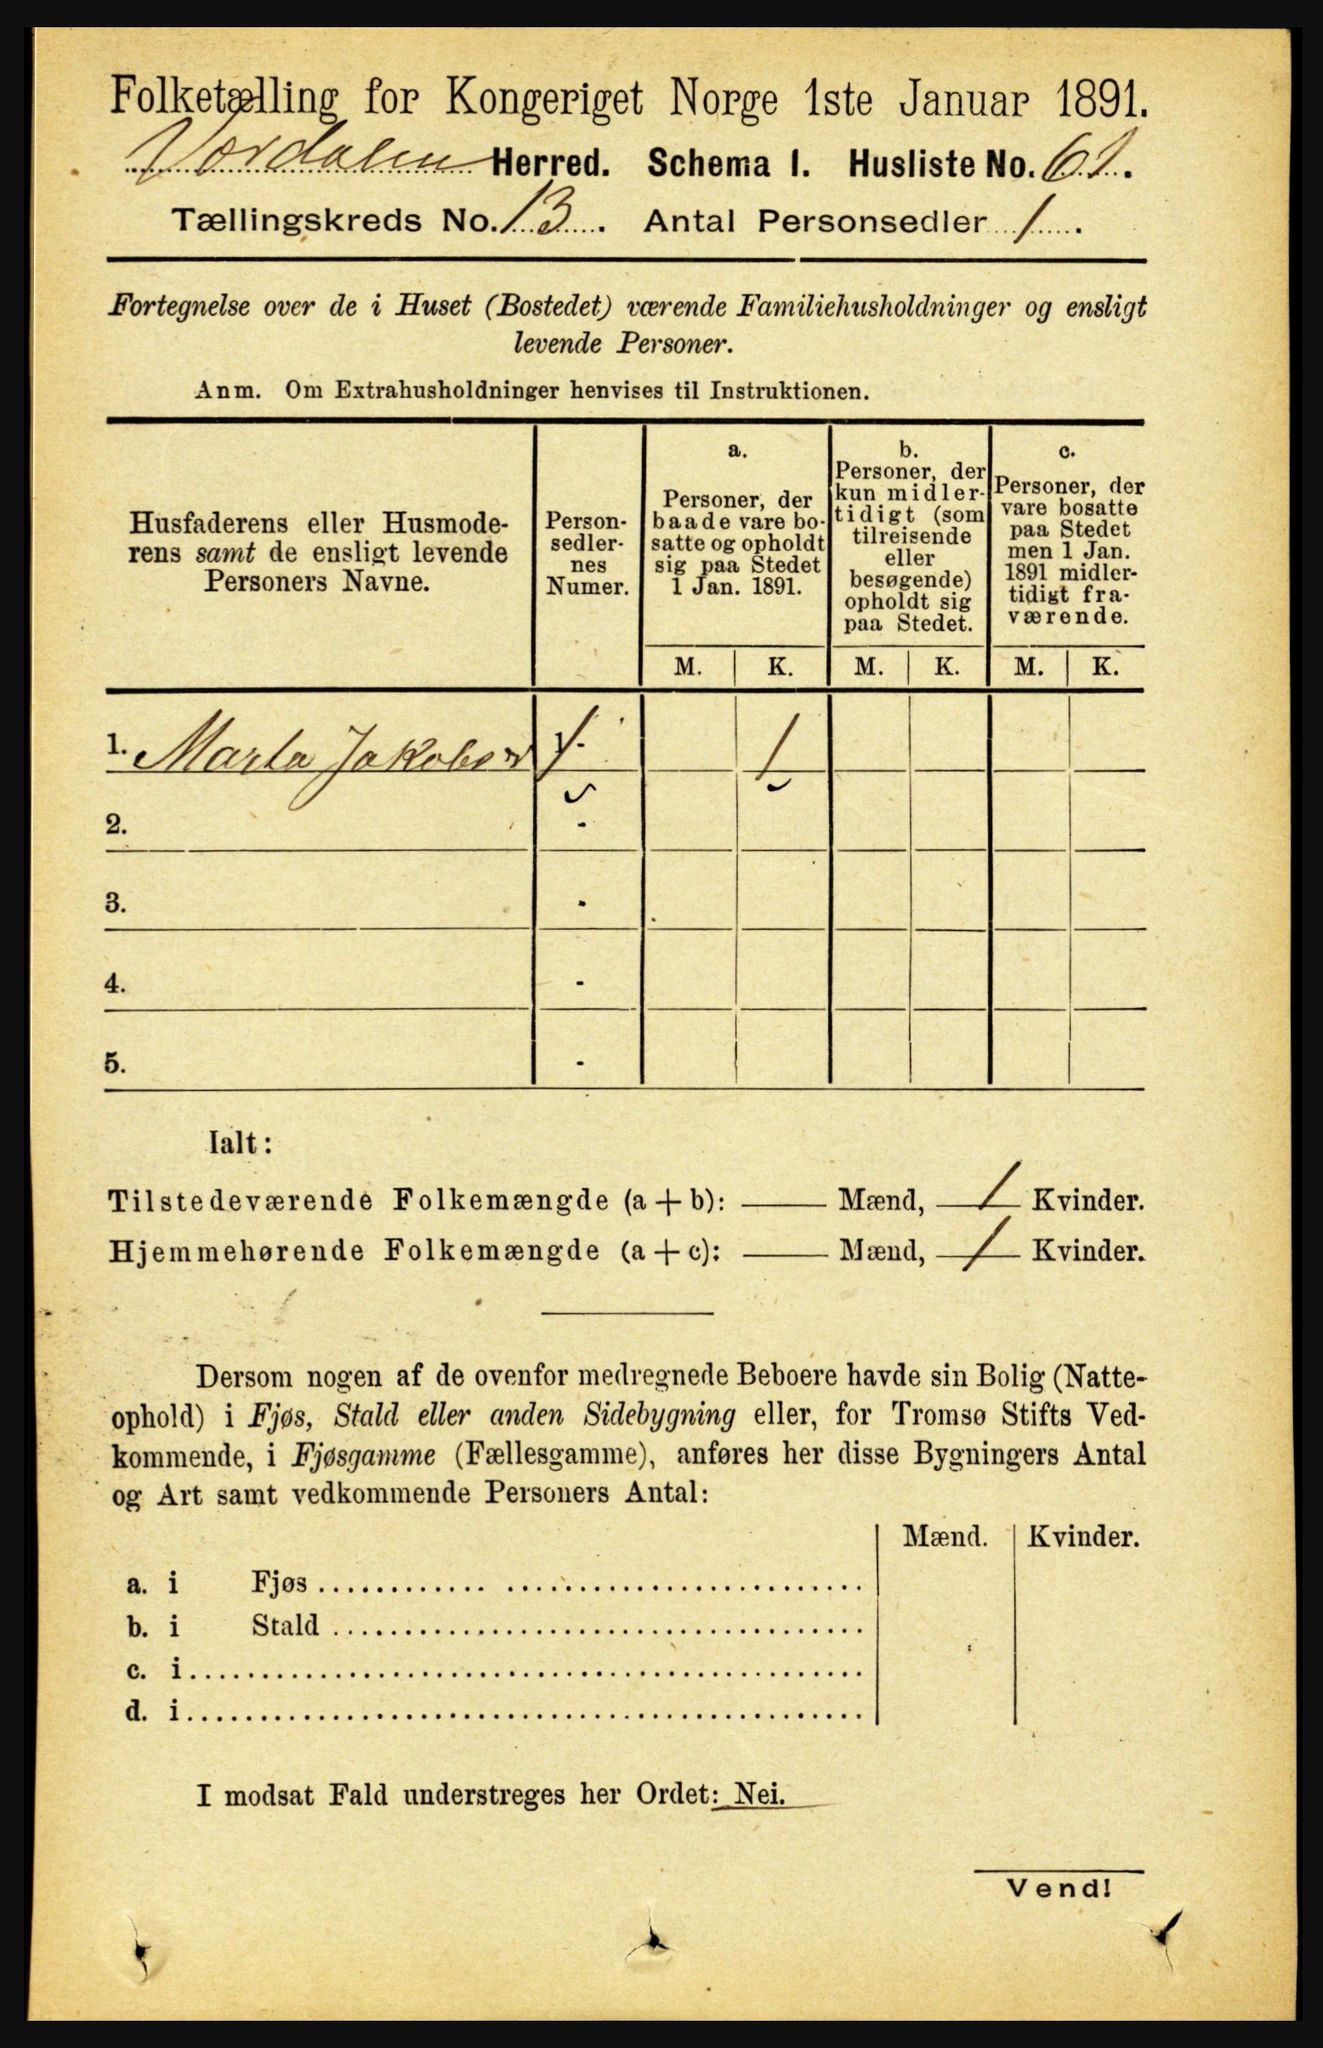 Folketælling for Kongeriget Norge 1ste Januar 1891.
Værdalen Herred. Schema I. Husliste No. 61.
Tællingskreds No. 13. Antal Personsedler 1.
Fortegnelse over de i Huset (Bostedet) værende Familiehusholdninger og ensligt
levende Personer.
Anm. Om Extrahusholdninger henvises til Instruktionen.
Husfaderens eller Husmode-
rens samt de ensligt levende
Personers Navne.
Person-
sedler-
nes
Numer.
a.
Personer, der
baade vare bo-
satte og opholdt
sig paa Stedet
1 Jan. 1891.
b.
Personer, der
kun midler-
tidigt (som
tilreisende
eller
besøgende)
opholdt sig
paa Stedet.
c.
Personer, der
vare bosatte
paa Stedet
men 1 Jan.
1891 midler-
tidigt fra-
værende.
M. K. M. K. M. K.
1. Marta Jakobs 1. 1
2. -
3. -
4. -
5. -
Ialt:
Tilstedeværende Folkemængde (a + b): —— Mænd, 1 Kvinder.
Hjemmehørende Folkemængde (a + c): —— Mænd, 1 Kvinder.
Dersom nogen af de ovenfor medregnede Beboere havde sin Bolig (Natte-
ophold) i Fjøs, Stald eller anden Sidebygning eller, for Tromsø Stifts Ved-
kommende, i Fjøsgamme (Fællesgamme), anføres her disse Bygningers Antal
og Art samt vedkommende Personers Antal:
Mænd. Kvinder.
a. i Fjøs
b. i Stald
c. i
d. i
I modsat Fald understreges her Ordet: Nei.
Vend!